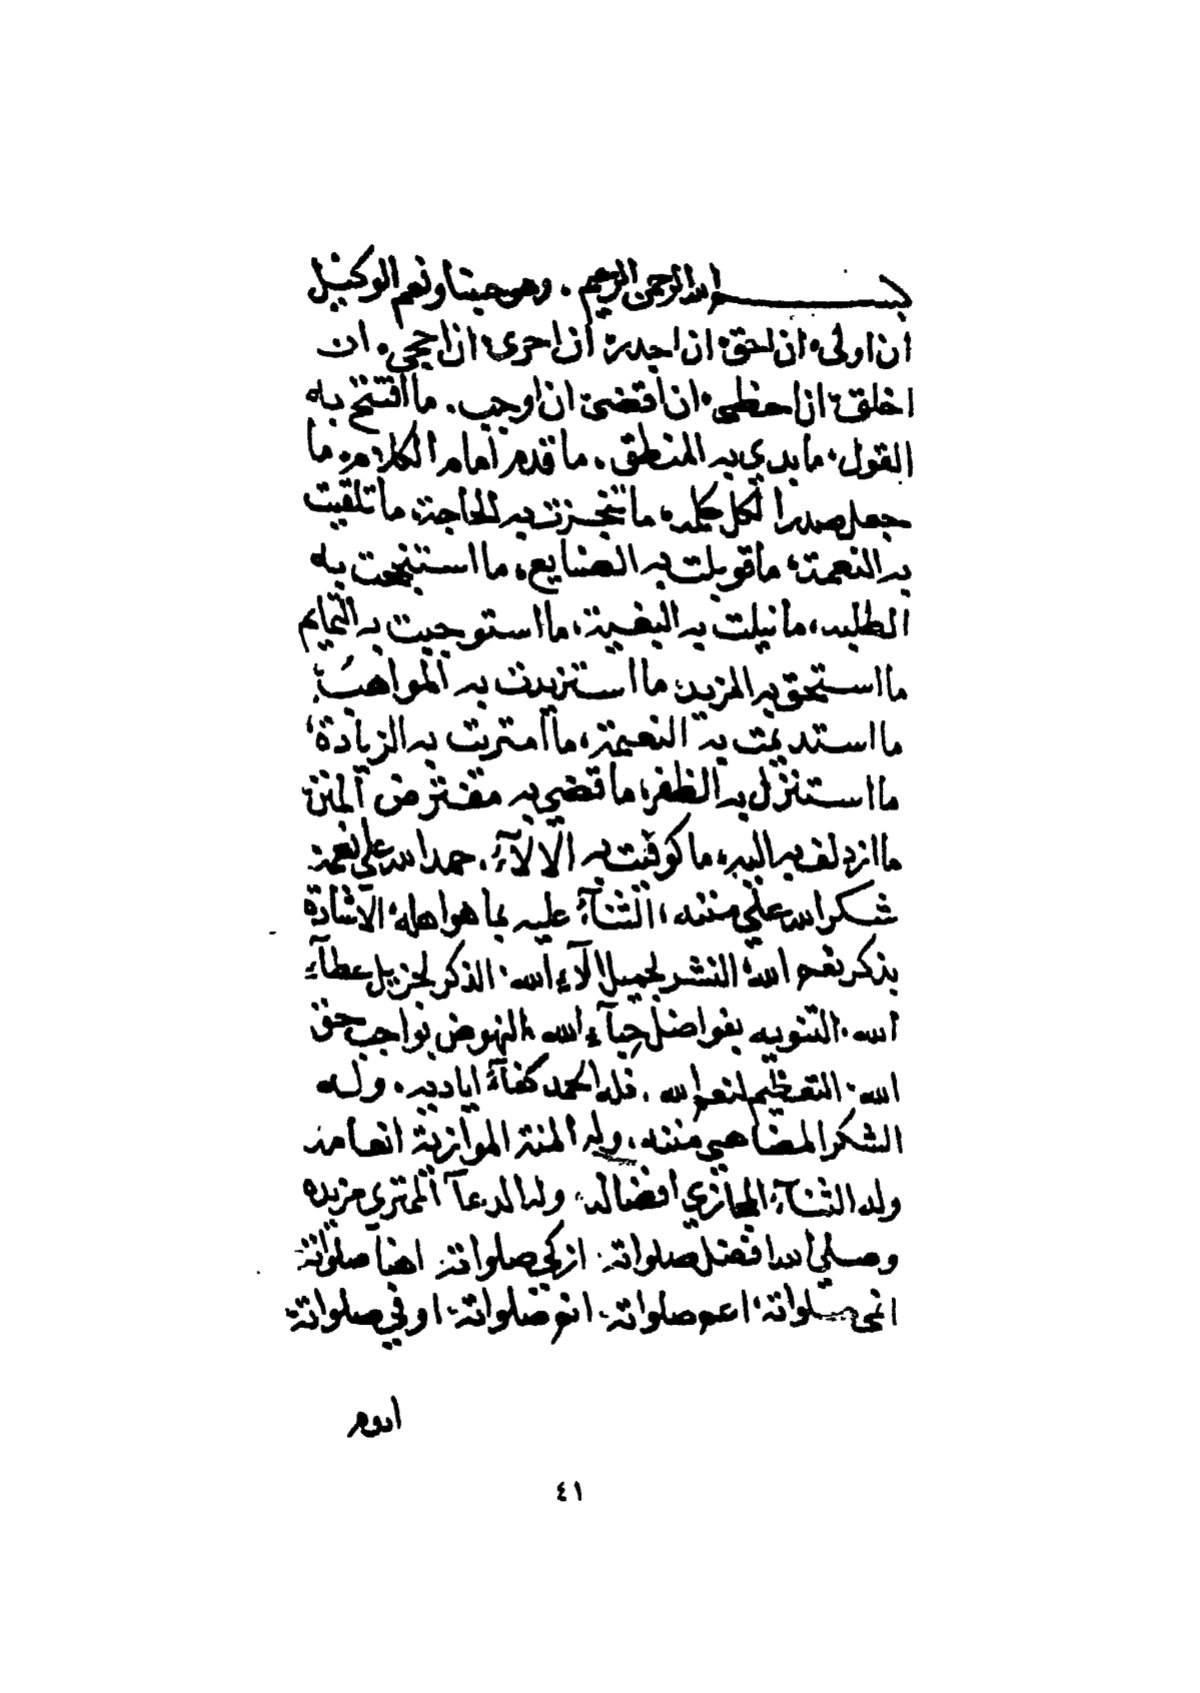 بسم الله الرحمن الرحيم . وهو حسبنا ونعم الوكيل
ان اولى، ان احق، ان اجدر، ان احرى، ان احجى، ان
اخلق، ان احظى، ان اقضى، ان اوجب. ما افتتح به
القول، ما بدي به المنطق، ما قدم امام الكلام، ما
جعل صدرا لكل كلمه، ما تنجزت به الحاجة، ما تلقيت
به النعمة، ما قوبلت به الصنايع، ما استنجحت به
الطلبه، ما نيلت به البغية، ما استوجبت به التمايم
ما استحق به المزيد، ما استزيدت به المواهب،
ما استديمت به النعيمة، ما امتريت به الزيادة،
ما استنزل به الظفر، ما قضي به مفترض المنن
ما ازدلف به اليه، ما كوفيت به الالآء، حمد الله على نعمه
شكر الله على مننه، الثنآء عليه بما هو اهله، الاشادة
بذكر نعم الله، النشر لجميل الآء الله، الذكر لجزيل عطآء
الله، التنويه بفواضل حبآء الله، النهوض بواجب حق
الله، التعظيم لنعم الله . فله الحمد كفآء اياديه، وله
الشكر المضاهي مننه، وله المنة الموازية انعامه
وله الثنآء المجازي افضاله، وله الدعآ الممتري مزيده
وصلى الله افضل صلواته، ازكى صلواته، اهنآ صلواته
انمى صلواته، اعم صلواته، اتم صلواته، اوفى صلواته
ادوم
٤١